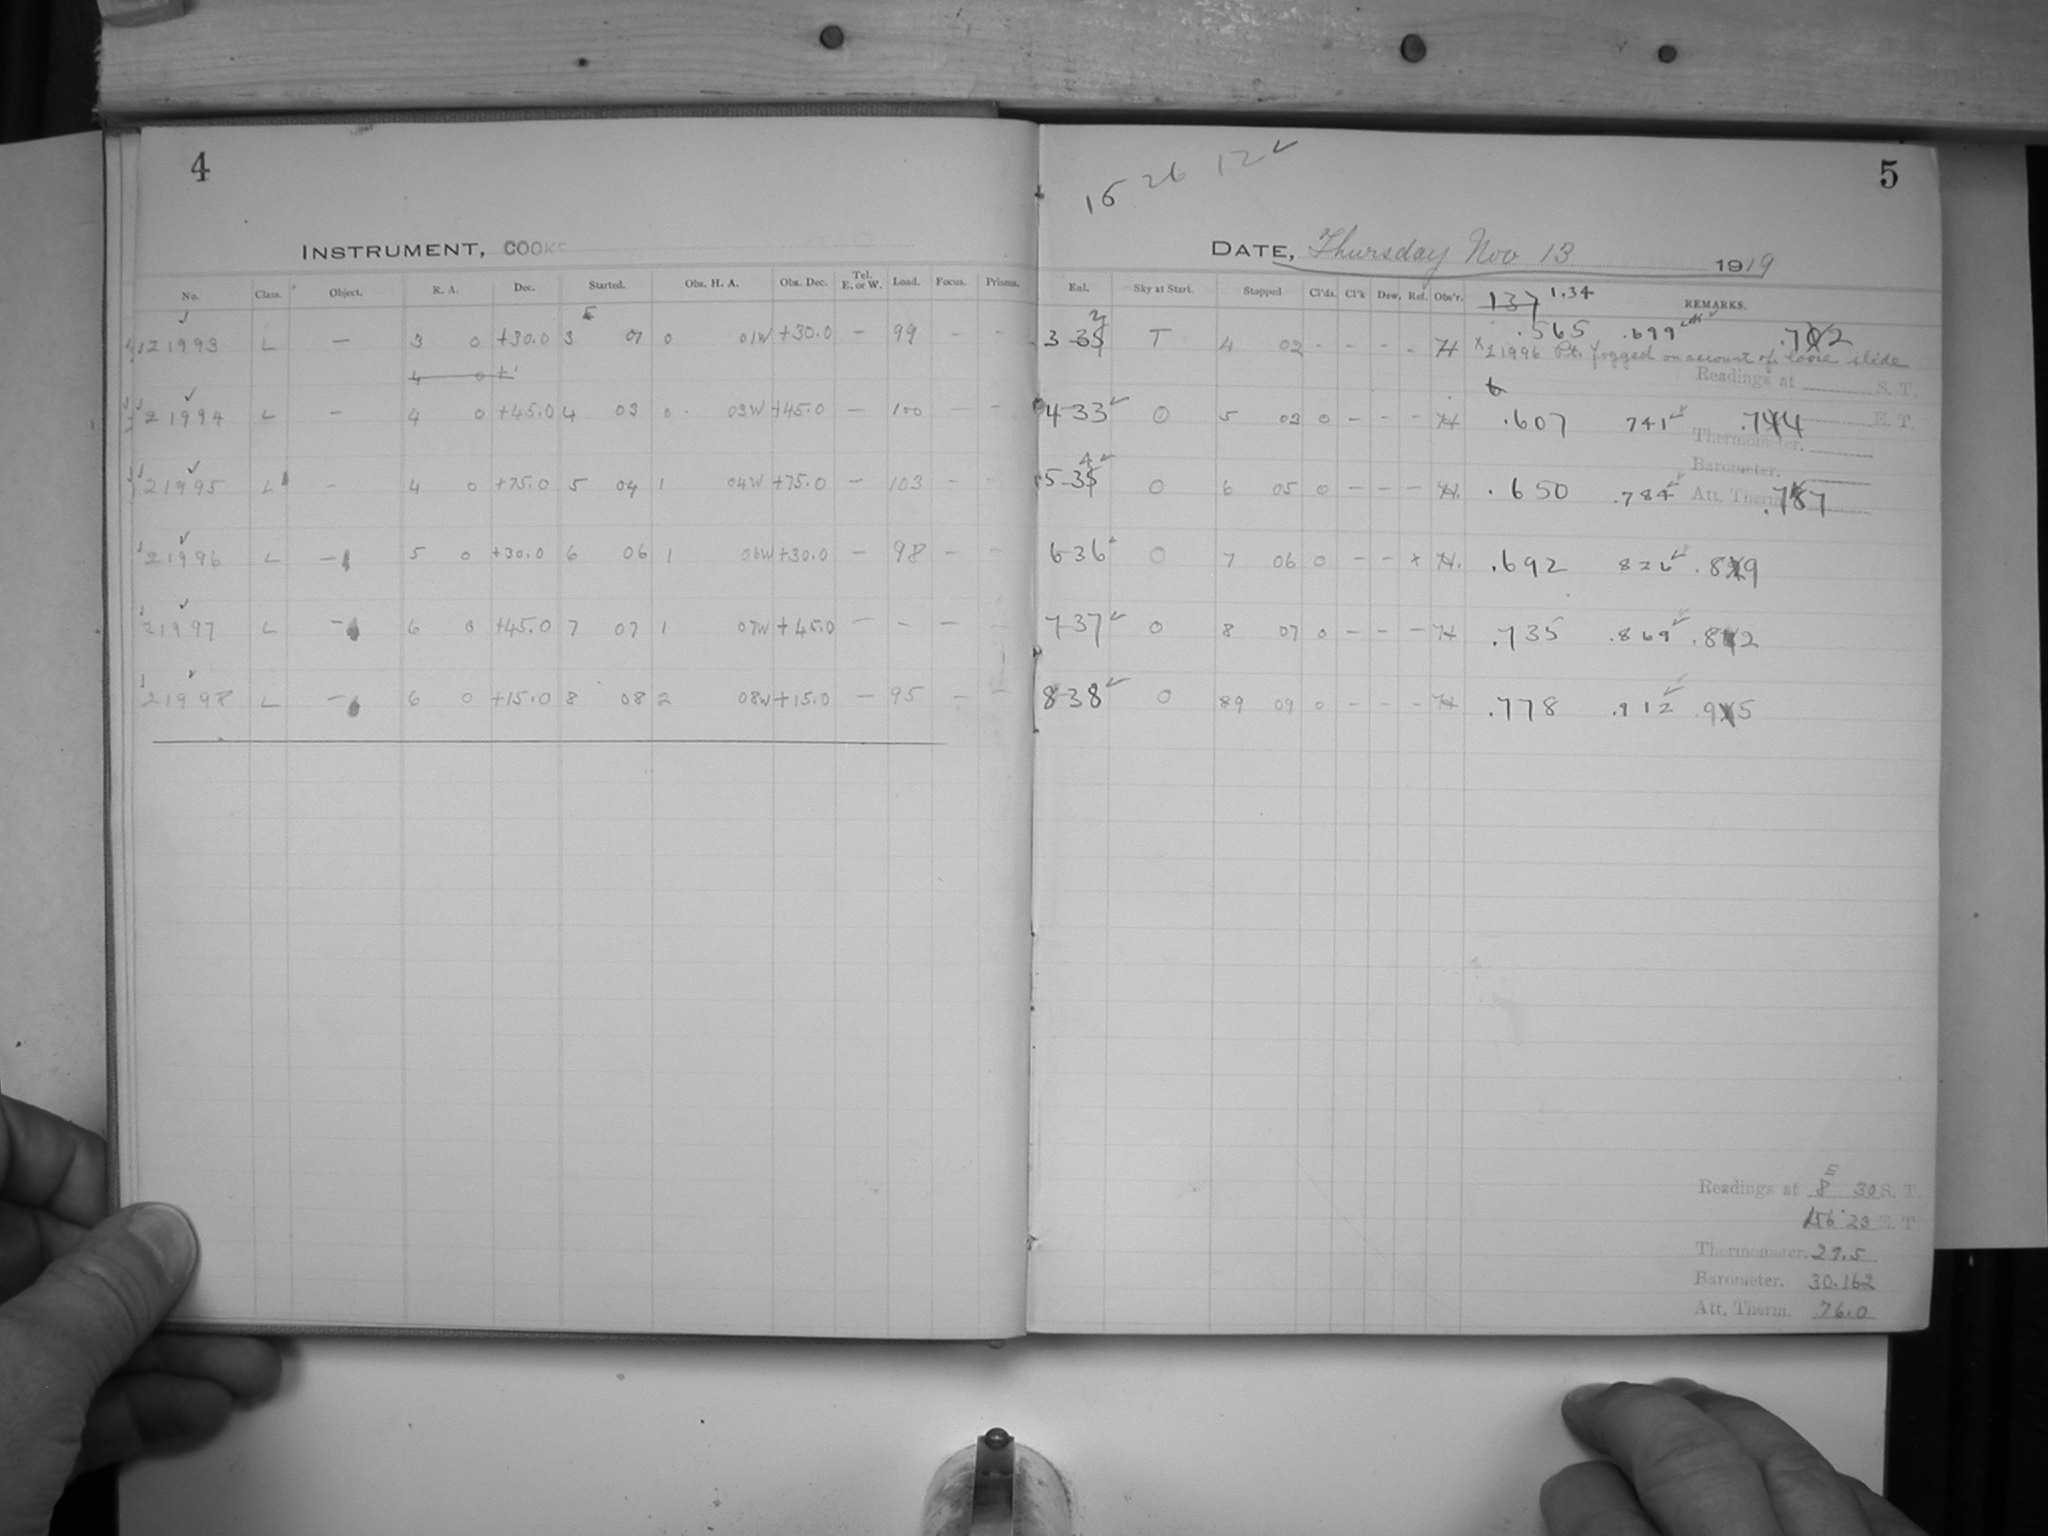 4
INSTRUMENT, COOKE
No. Class. Object. R. A. Dec. Started. Obs. H. A. Obs. Dec. Tel. E. or W. Load. Focus. Prisms.
21993 L — 3 0 +30.0 3 01 0 01W +30.0 — 99 — —
4 0 +
21994 L — 4 0 +45.0 4 03 0 03W +45.0 — 100 — —
21995 L — 4 0 +75.0 5 04 1 04W +75.0 — 103 — —
21996 L — 5 0 +30.0 6 06 1 06W +30.0 — 98 — —
21997 L — 6 0 +45.0 7 07 1 07W +45.0 — — — —
21998 L — 6 0 +15.0 8 08 2 08W +15.0 — 95 — —
5
15 26 12 ✓
DATE, Thursday Nov 13 1919
Exl. Sky at Start. Stopped Cl'ds. Cl'k Dew. Ref. Obs'r. 137 1.34 REMARKS.
3-35 2 T 4 02 - - - - H .565 .699 .702
x L1996 Pt. fogged on account of loose slide
Readings at S. T.
4-33 ✓ 0 5 03 0 - - - H .607 741 ✓ .744 E. T.
Thermometer.
Barometer.
5-35 4 ✓ 0 6 05 0 - - - H. .650 .784 ✓ Att. Therm .787
6-36 0 7 06 0 - - x H. .692 826 ✓ .829
7-37 ✓ 0 8 07 0 - - - H .735 .869 ✓ .872
8-38 ✓ 0 89 09 0 - - - H .778 .912 ✓ .915
Readings at 8 30 S. T.
E. T.
Thermometer. 29.5
Barometer. 30.162
Att. Therm. 76.0